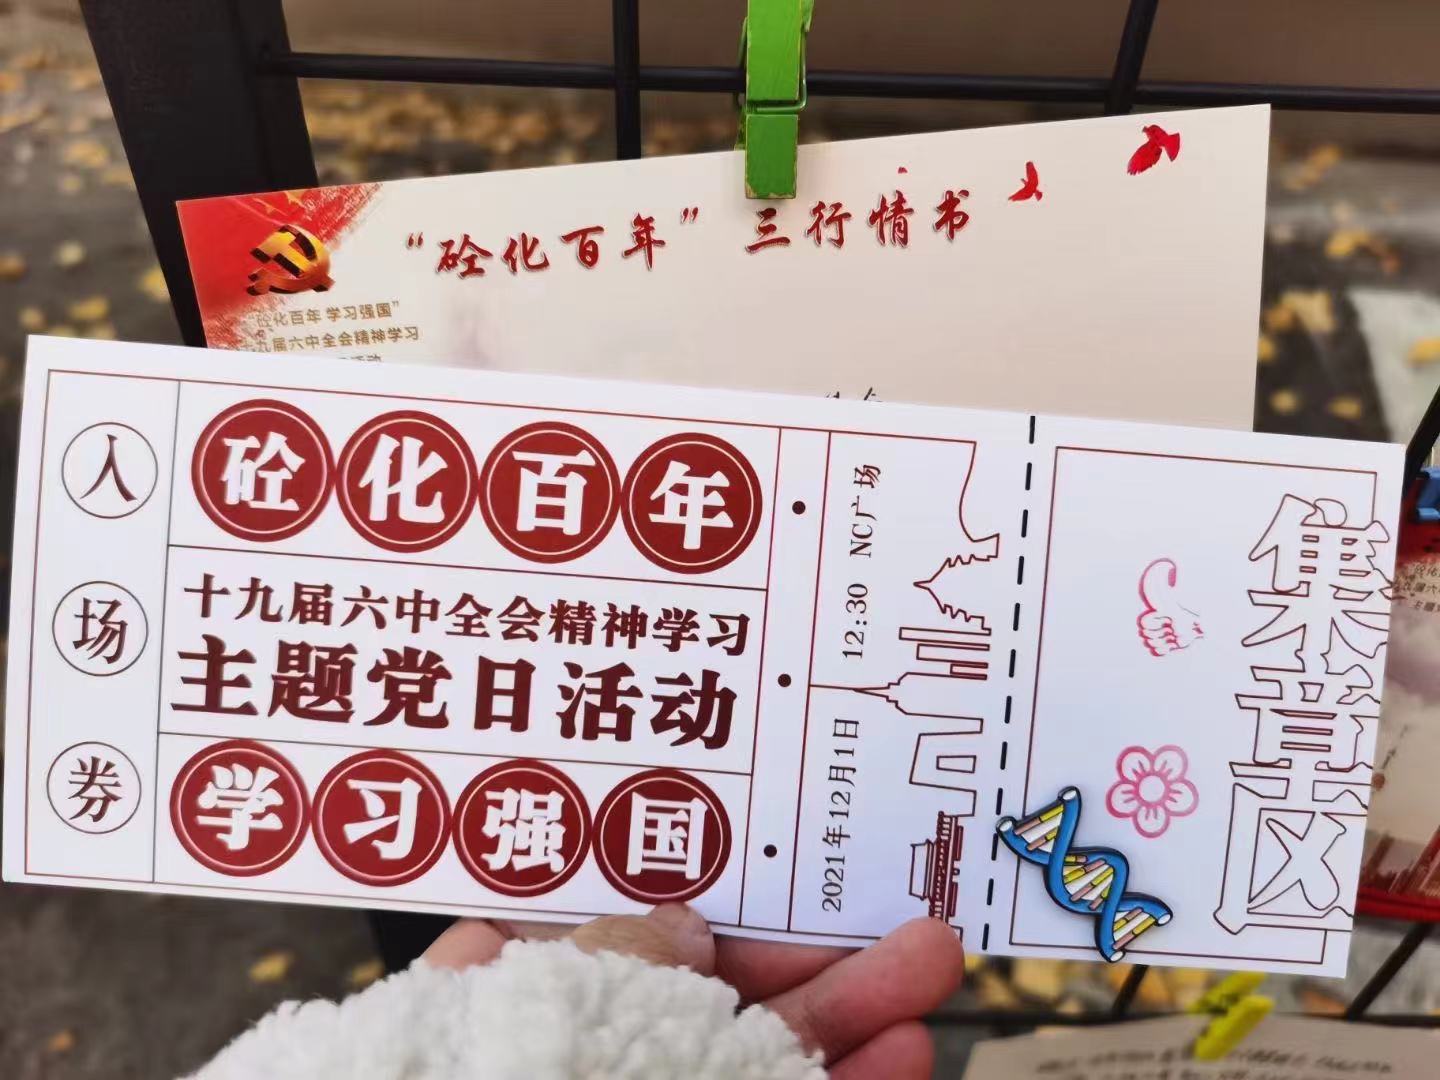 “砼化百年”三行情书
“砼化百年 学习强国”
十九届六中全会精神学习
入场券
砼化百年
十九届六中全会精神学习
主题党日活动
学习强国
2021年12月1日
12:30 NC广场
集章区